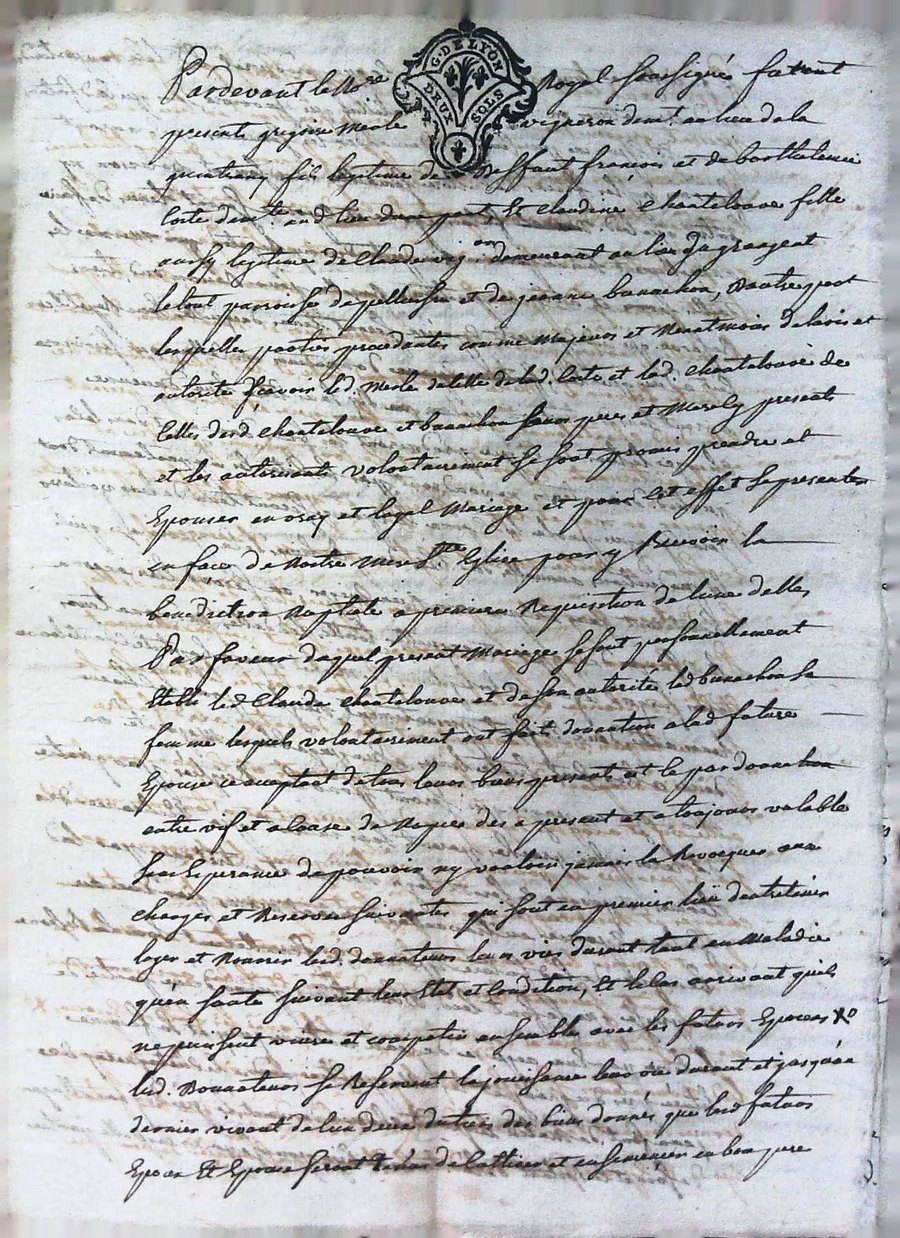 G. DE LYON
DEUX SOLS
Pardevant le No.re Royal soussigné furent
presents gregoire Merle vigneron dem.t au lieu de la
fils legitime de deffunt françois et de barthelemie
Coste dem.te aud lieu dune part, Et Claudine Chantelouve fille
aussy legitime de Claude vig.on demeurant au lieu du grangeat
parroisse de pellussin et de jeanne bonnechon, Dautre part
lesquelles parties procedantes comme Majeurs et Neantmoins de lavis et
autorité sçavoir led. Merle de celle de lad. Coste et lad. Chantelouve de
Celles desd Chantelouve et bonnechon ses pere et Mere Cy presents
et les autorisants volontairement se sont promis prendre et
Epouser en vray et legal Mariage et pour cet effet se presenter
en face de Nostre Mere S.te Eglise pour y Recevoir la
benediction Nuptiale a premiere Requisition de lune delles
En faveur duquel present Mariage se sont personnellement
Etablis led Claude Chantelouve et de son autorité lad bonnechon sa
femme lesquels volontairement ont fait donnation a lad future
Epouse ce acceptant de tous leurs biens presents et ce par donnation
entre vif et a cause de Nopces des a present et a toujours valable
sans Esperance de pouvoir ny vouloir jamais la Revocquer aux
charges et Reserves suivantes qui sont en premier lieu dentretenir
loger et Nourrir lesd. donnateurs leurs vies durant tant en Maladie
quen santé suivant leur Etat et Condition, Et le cas arrivant quils
ne puissent vivre et compatir ensemble avec les futurs Epoux
lesd. Donnateurs se Reservent la jouissance leur vie durant et jusquau
dernier vivant de lun deux du tiers des biens donnés que lesd futurs
Epoux Et Epouse seront tenus de cultiver et ensemencer en bon pere